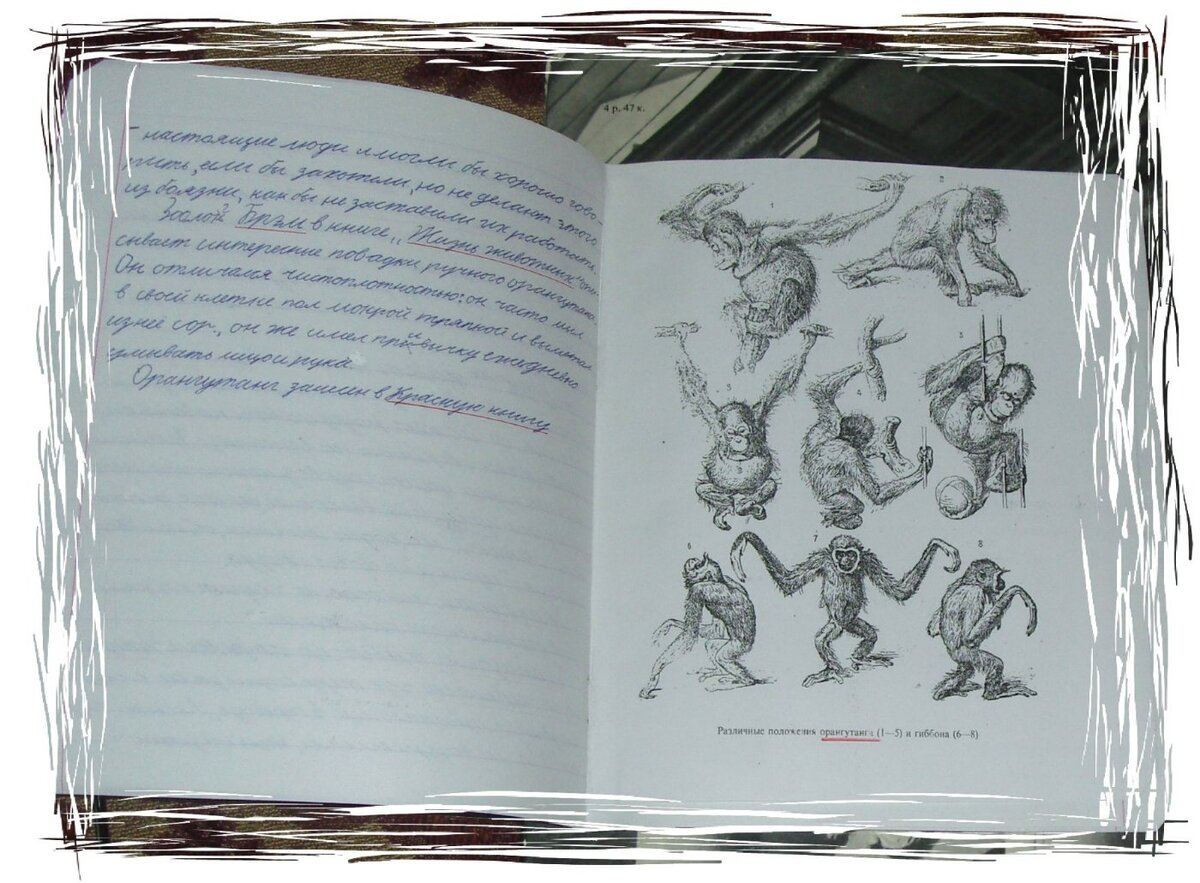 4 р. 47 к.
- настоящие люди и могли бы хорошо гово-
рить, если бы захотели, но не делают этого
из боязни, как бы не заставили их работать.
Зоолог Брэм в книге "Жизнь животных" опи-
сывает интересные повадки ручного орангутана.
Он отличался чистоплотностью: он часто мыл
в своей клетке пол мокрой тряпкой и выметал
из неё сор, он же имел привычку ежедневно
умывать лицо и руки.
Орангутанг занесен в Красную книгу
1
2
3
4
5
6
7
8
Различные положения орангутанга (1—5) и гиббона (6—8)